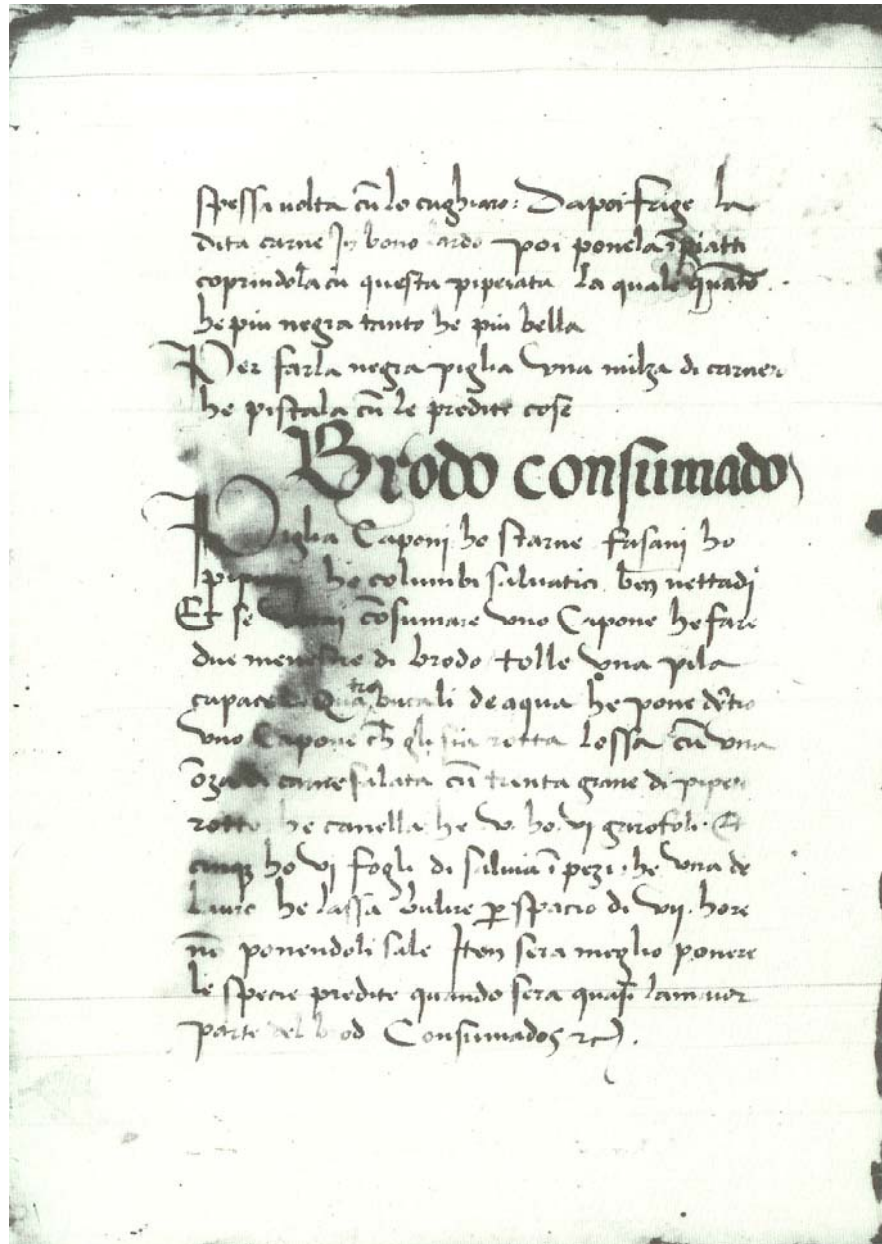 spessa uolta cũ lo cughiaro: Dapoi frige la
dita carne In bono lardo poi ponela ĩ piatti
coprindola cũ questa piperata la quale quãto
he piu negra tanto he piu bella
Per farla negra piglia vna milza di carner
he pistala cũ le predite cose
Brodo consumado
Piglia Caponi ho starne fasani ho
ho columbi saluatici ben nettadi
Et se cõsumare vno Capone he fare
due menestre di brodo tolle vna pila
capace di Quatro bucali de aqua he pone dẽtro
vno Capone ch gli sia rotta lossa cũ vna
õza di carne salata cũ trenta grane di piper
rotto he canella he v ho vj garofoli. Et
cinqz ho vj fogli di saluia ĩ pezi. he vna de
lauro he lassa bulire p spacio di vij. hore
nõ ponendoli sale Iten sera meglio ponere
le specie predite quando sera quasi la maior
parte del brod Consumados